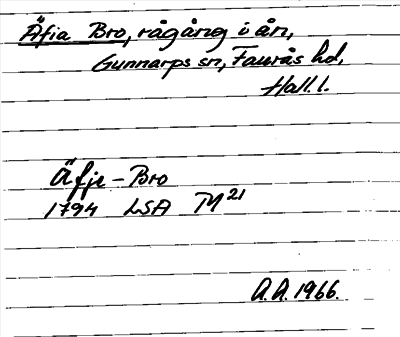 Äfia Bro, rågång i ån,
Gunnarps sn, Faurås hd,
Hall. l.
Äfje - Bro
1794 LSA M21
A.A. 1966.